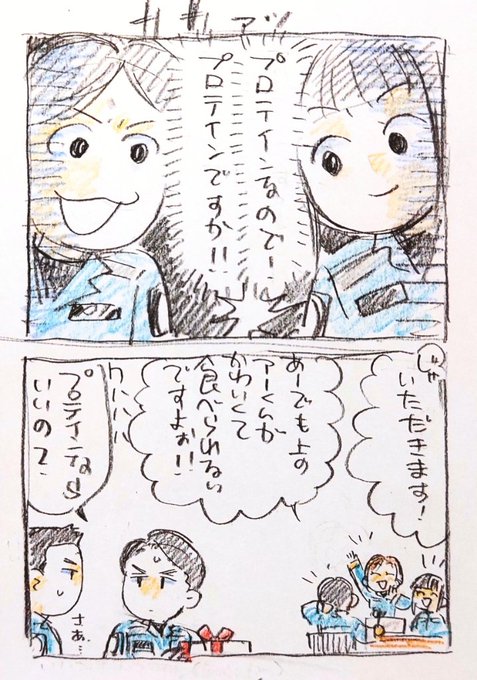 プロテインなので!
プロテインですか!!
じゃ
いただきます!
あーでも上の
アーくんが
かわいくて
食べられない
ですよぉ!!
ワハハハ
プロテインなら
いいの?
さぁ…